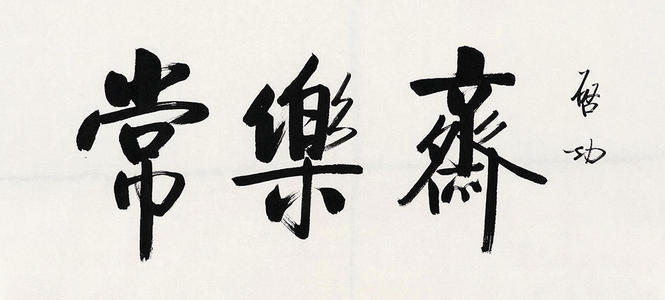 常樂齋
啓功